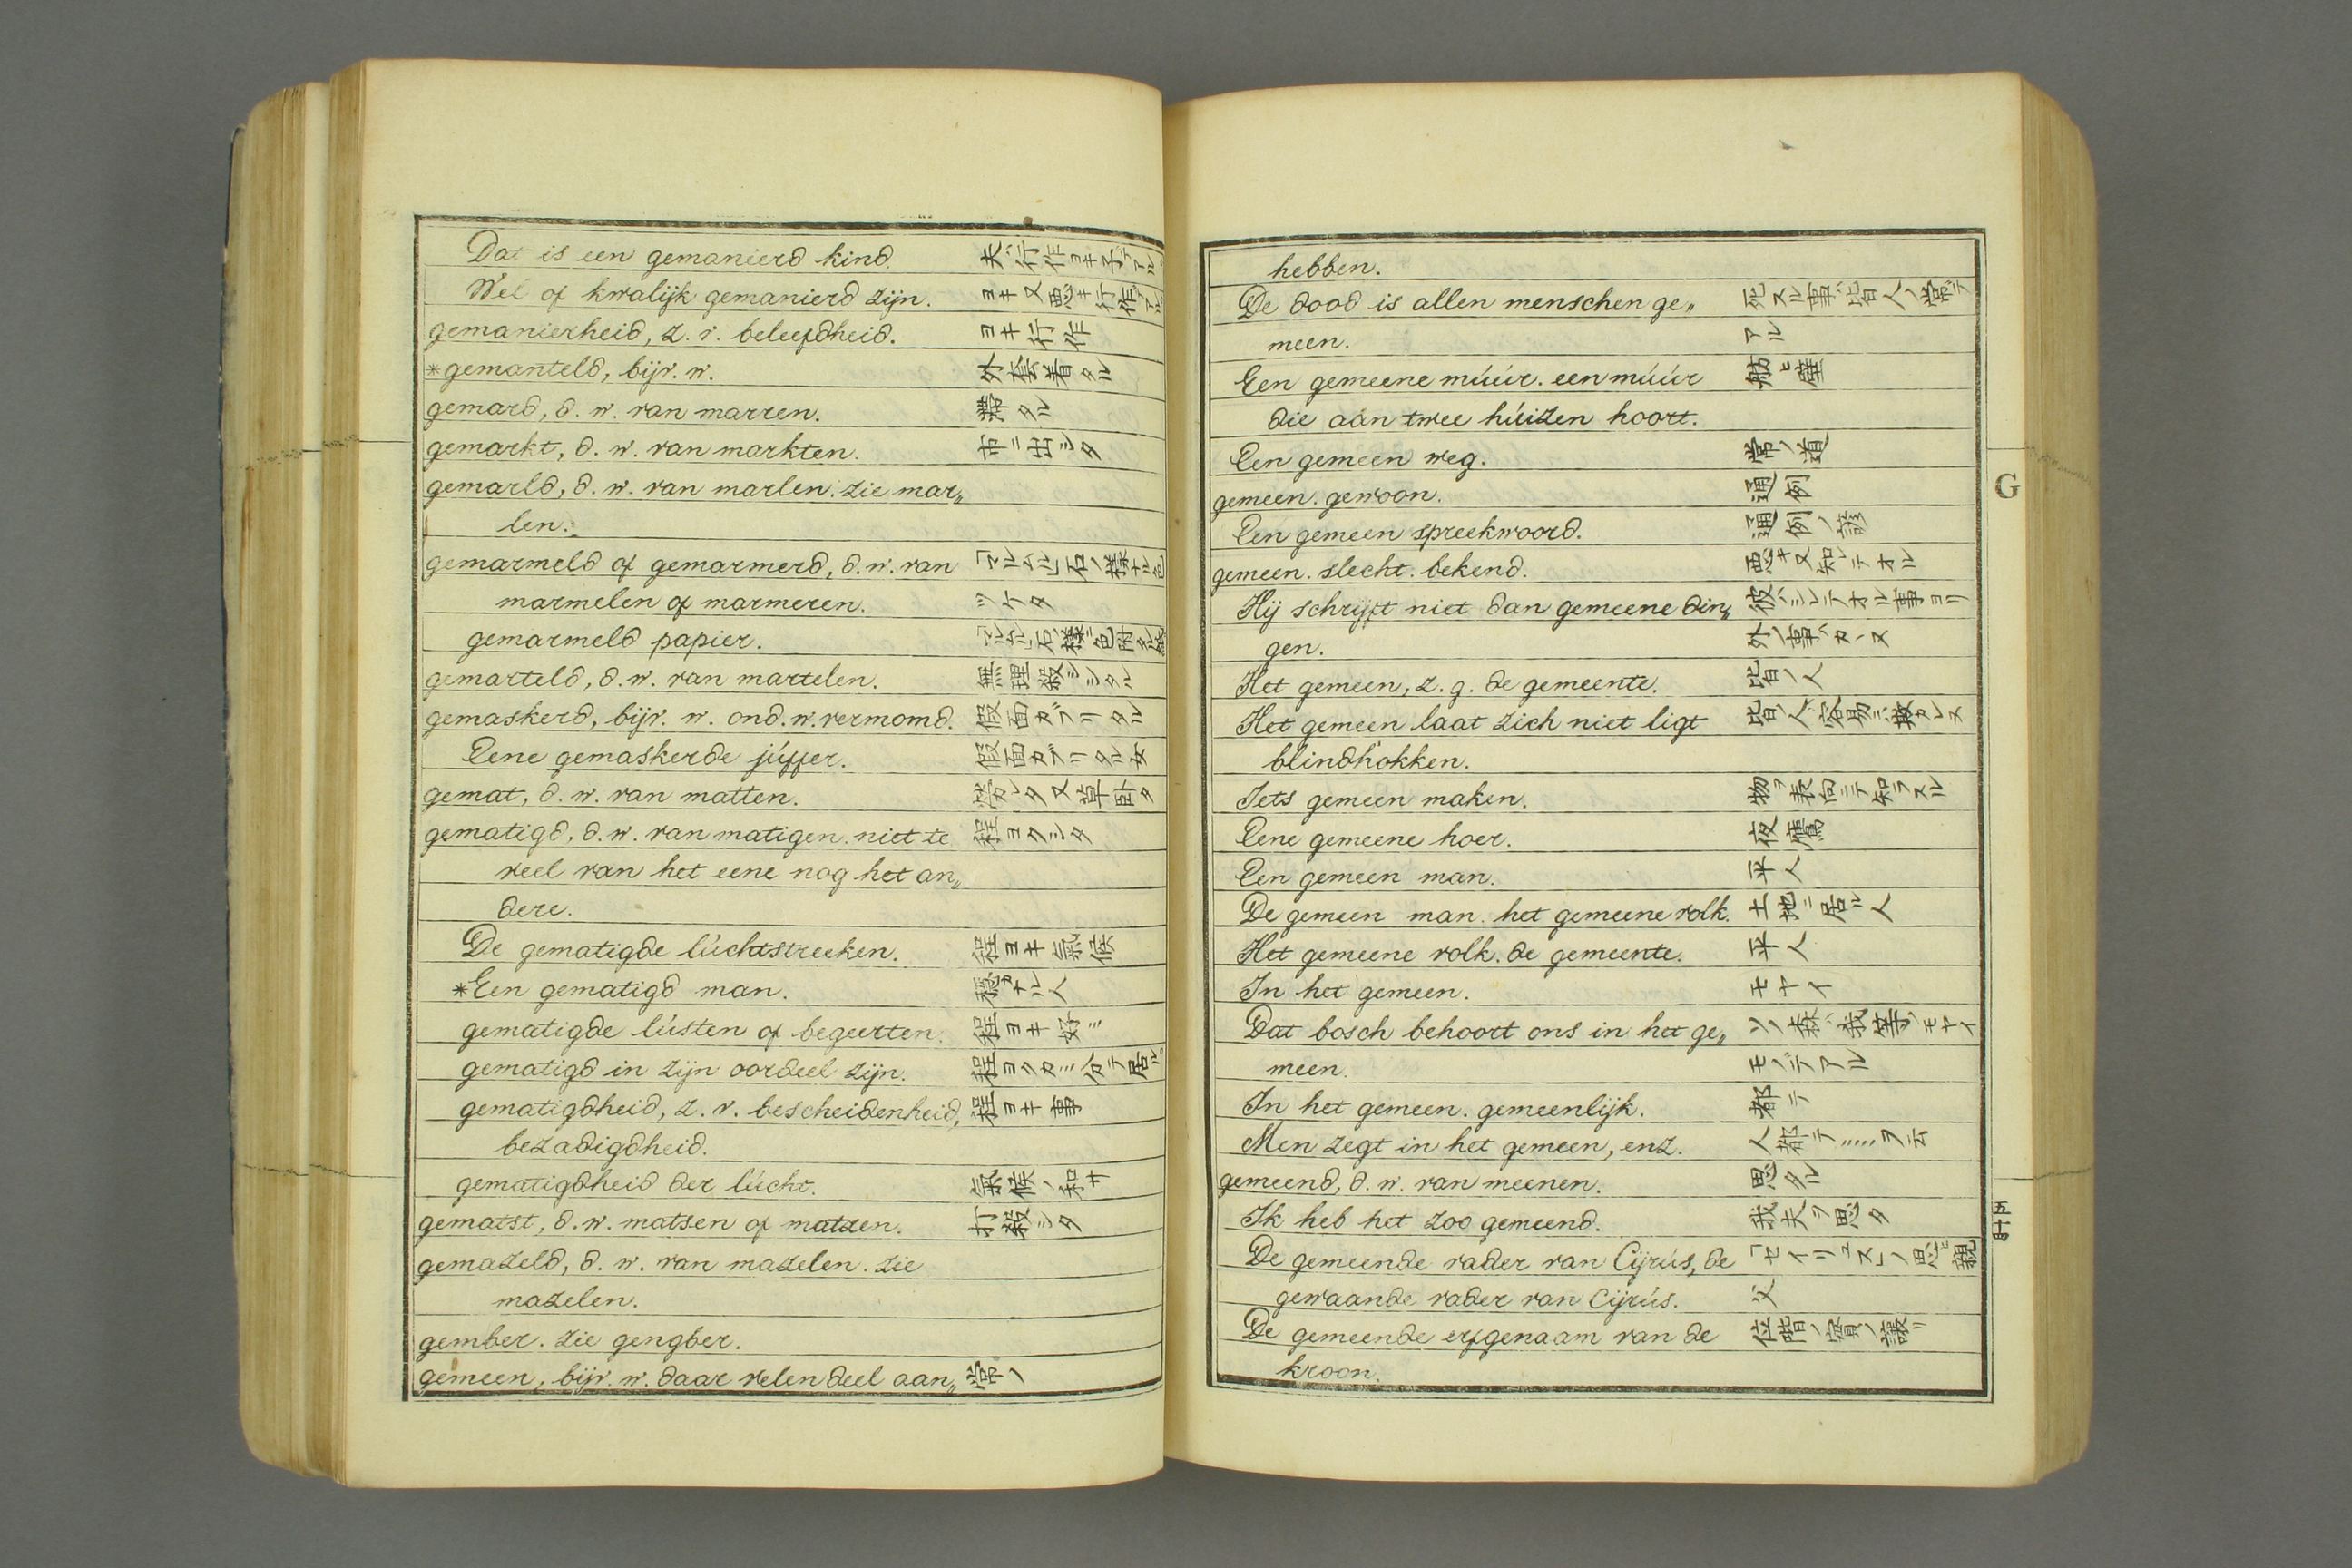 Dat is een gemanierd kind. 夫ハ行作ヨキ子デアル
Wel of kwalijk gemanierd zijn. ヨキ又悪キ行作デアル
gemanierheid, z. v. beleefdheid. ヨキ行作
*gemanteld, bijv. w. 外套着タル
gemard, d. w. van marren. 滞タル
gemarkt, d. w. van markten. 市ニ出シタ
gemarld, d. w. van marlen. zie mar„
len.
gemarmeld of gemarmerd, d. w. van 「マルムル」石ノ様ナル色
marmelen of marmeren. ツケタ
gemarmeld papier. 「マルムル」石ノ様ニ色附タル紙
gemarteld, d. w. van martelen. 無理殺シシタル
gemaskerd, bijv. w. ond. w. vermomd. 假面カブリタル
Eene gemaskerde júffer. 假面カブリタル女
gemat, d. w. van matten. 労レタ又草臥タ
gematigd, d. w. van matigen. niet te 程ヨクシタ
veel van het eene nog het an„
dere.
De gematigde lúchtstreeken. 程ヨキ氣候
*Een gematigd man. 穏カナル人
gematigde lústen of begeerten. 程ヨキ好ミ
gematigd in zijn oordeel zijn. 程ヨクカミ分テ居ル
gematigdheid, z. v. bescheidenheid, 程ヨキ事
bezadigdheid.
gematigdheid der lúcht. 氣候ノ和サ
gematst, d. w. matsen of matzen. 打殺シタ
gemazeld, d. w. van mazelen. zie
mazelen.
gember. zie gengber.
gemeen, bijv. w. daar velen deel aan„ 常ノ
hebben.
De dood is allen menschen ge„ 死スル事ハ皆人ノ常デ
meen. アル
Een gemeene múúr. een múúr 舫ヒ壁
die aan twee húizen hoort.
Een gemeen weg. 常ノ道
gemeen. gewoon. 通例
Een gemeen spreekwoord. 通例ノ諺
gemeen. slecht. bekend. 悪キ又知レテオル
Hij schrijft niet dan gemeene din„ 彼ハシレテオル事ヨリ
gen. 外ノ事ハカヽヌ
Het gemeen, z. g. de gemeente. 皆ノ人
Het gemeen laat zich niet ligt 皆ノ人ハ容易ニ欺カレヌ
blindhokken.
Iets gemeen maken. 物ヲ表向ニテ知ラスル
Eene gemeene hoer. 夜鷹
Een gemeen man. 平人
De gemeen man. het gemeene volk. 土地ニ居ル人
Het gemeene volk. de gemeente. 平人
In het gemeen. モヤイ
Dat bosch behoort ons in het ge„ ソノ森ハ我等ノモヤイ
meen. モノデアル
In het gemeen. gemeenlijk. 都テ
Men zegt in het gemeen, enz. 人都テ……ヲ云
gemeend, d. w. van meenen. 思タル
Ik heb het zoo gemeend. 我夫ヲ思タ
De gemeende vader van Cijrús, de 「セイリュス」ノ思ヒ親
gewaande vader van Cijrús. 父
De gemeende erfgenaam van de 位階ノ寶ノ譲リ
kroon.
G
五十八